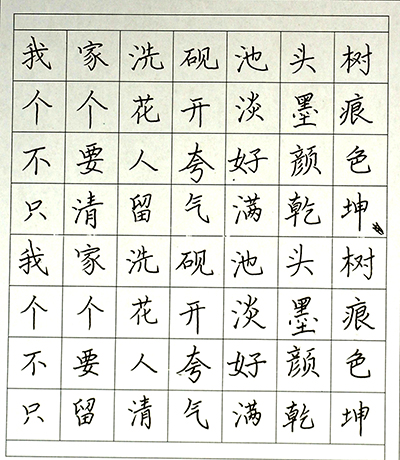 我家洗砚池头树
个个花开淡墨痕
不要人夸好颜色
只清留气满乾坤
我家洗砚池头树
个个花开淡墨痕
不要人夸好颜色
只留清气满乾坤